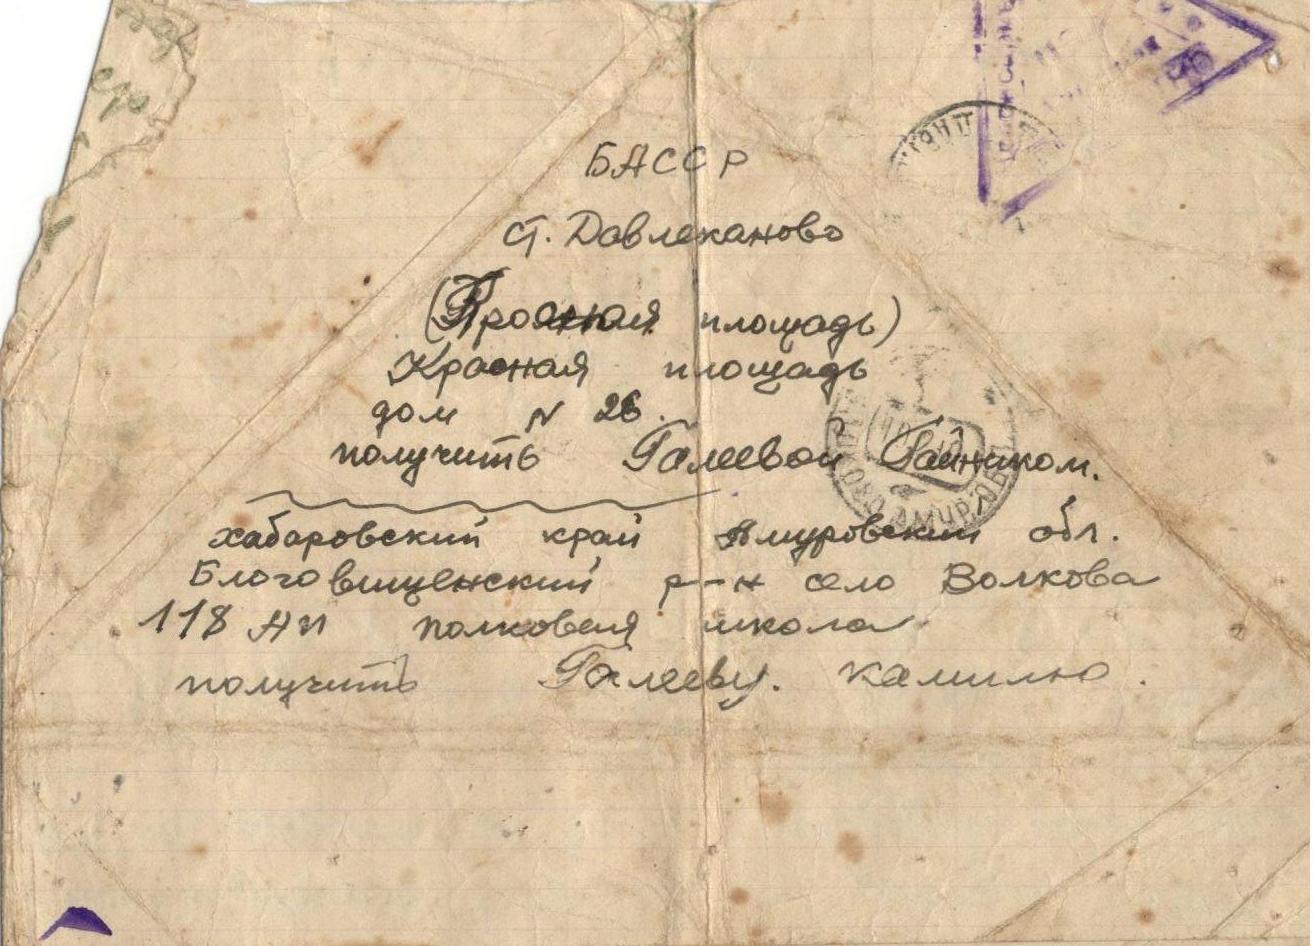 БАССР
ст. Давлеканово
площадь)
Красная площадь
дом N 26.
получить Галеевой
хабаровский край Амуровский обл.
Благовищенский р-н село Волкова
118 АП полковая школа
получить Галееву. Камилю.
АМУР. ОБЛ